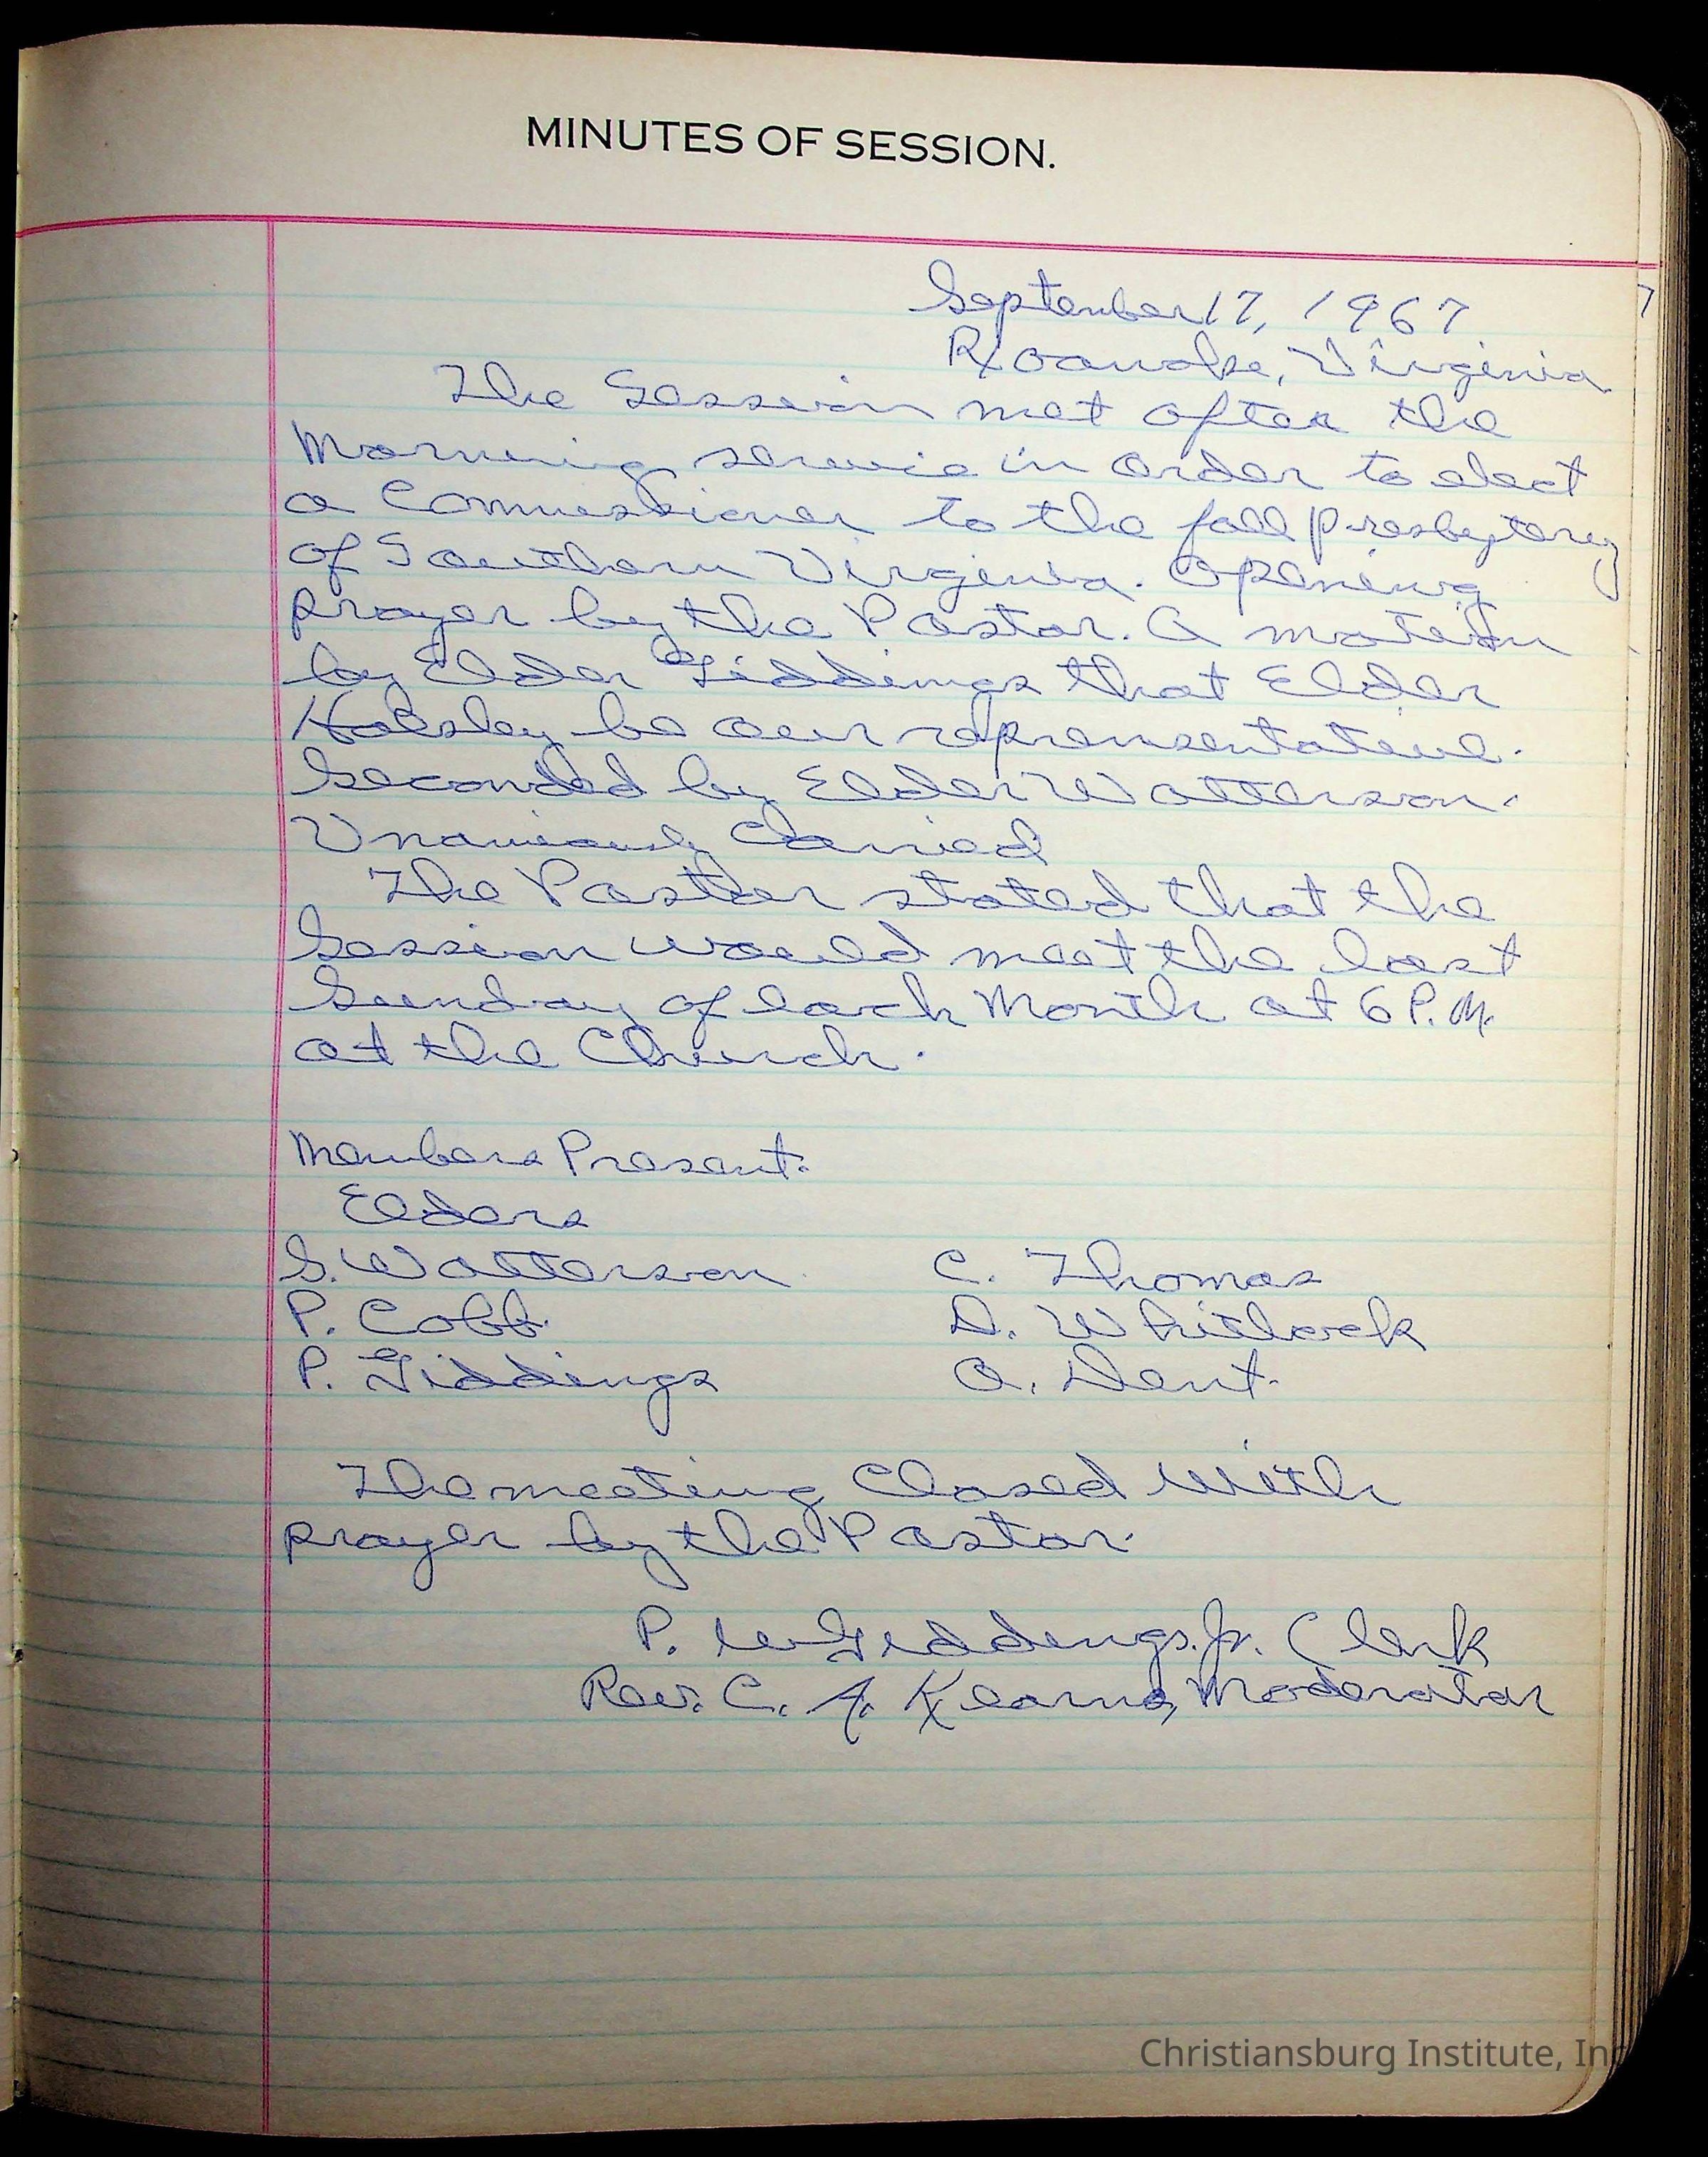 MINUTES OF SESSION.
September 17, 1967
7
Roanoke, Virginia
The Session met after the
Morning service in order to elect
a Commissioner to the fall Presbytery
of Southern Virginia. Opening
prayer by the Pastor. A motion
by Elder Giddings that Elder
be our reprensentative.
Seconded by Elder Watterson.
Unanimously Carried
The Pastor stated that the
Session would meet the last
Sunday of each Month at 6 P.M.
at the Church.
Members Present.
Elders
S. Watterson C. Thomas
P. Cobb D. Whitlock
P. Giddings O. Dent.
The meeting Closed With
prayer by the Pastor.
P. W Giddings. Jr. Clerk
Rev. C. A. Kearns, Moderator
Christiansburg Institute, Inc